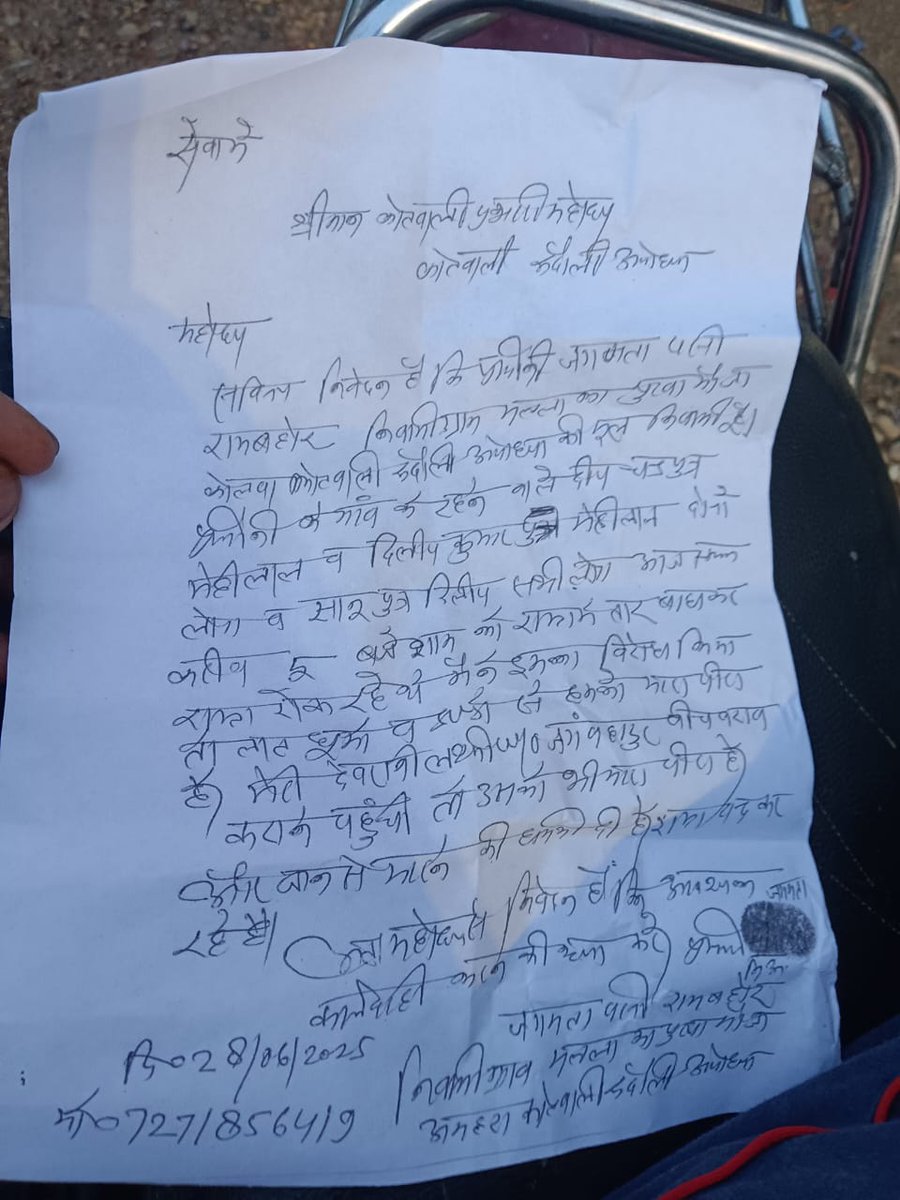 सेवामे
श्रीमान कोतवाली प्रभारी महोदय
कोतवाली रूदौली अयोध्या
महोदय
सविनय निवेदन है कि प्रार्थिनी जगमता पत्नी
रामबहोर निवासी ग्राम मल्ला का पुरवा मौजा
कोतवाली रूदौली अयोध्या की मूल निवासी है।
प्रार्थिनी के गांव के रहने वाले दीप चन्द्र पुत्र
मेहीलाल व दिलीप कुमार पुत्र मेहीलाल दोनो
लोग व पुत्र दिलीप सभी लोग आज
करीब 5 बजे शाम को रास्ता मे तार बाधकर
रास्ता रोक रहे थे मैने इसका विरोध किया
तो लात घूसो व डण्डो से हमको मारा पीटा
है। मेरी देवरानी लक्ष्मी जंगबहादुर बीच बराव
कराने पहुंची तो उसको भी मारा पीटा है
और जान से मारने की धमकी दी है रास्ता बन्द कर
रहे है।
अतः महोदय से निवेदन है कि आवश्यक
कार्यवाही करने की कृपा करे। प्रार्थिनी
जगमता
नि०अं०
जगमता पत्नी रामबहोर
दि० 28/06/2025
निवासी ग्राम मल्ला का पुरवा मौजा
मो० 7271856419
कोतवाली रूदौली अयोध्या